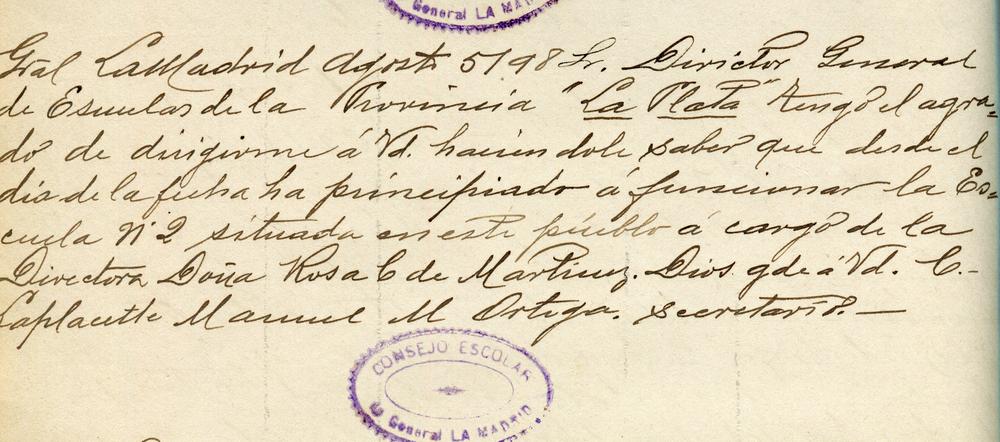 General LA MADRID
Gral LaMadrid Agosto 5/98 Sr. Director General
de Escuelas de la Provincia "La Plata" Tengo el agra=
do de dirigirme á Vd. haciendole saber que desde el
dia de la fecha ha principiado á funcionar la Es=
cuela Nº 2 situada en este pueblo á cargo de la
Directora Doña Rosa C de Martinez. Dios gde á Vd. C.-
Laplacette Manuel M Ortega. secretario.—
CONSEJO ESCOLAR
de General LA MADRID